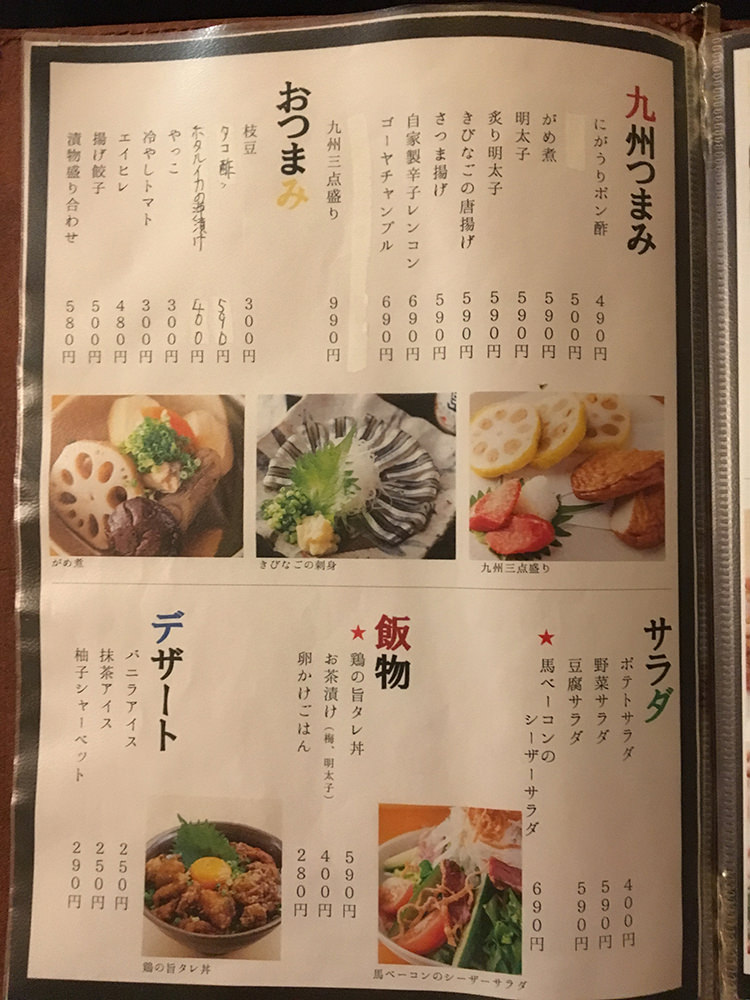 九州つまみ
にがうりポン酢 490円
500円
がめ煮 590円
明太子 590円
炙り明太子 590円
きびなごの唐揚げ 590円
さつま揚げ 590円
自家製辛子レンコン 690円
ゴーヤチャンプル 690円
九州三点盛り 990円
おつまみ
枝豆 300円
タコ酢 590円
ホタルイカの沖漬け 400円
やっこ 300円
冷やしトマト 300円
エイヒレ 480円
揚げ餃子 500円
漬物盛り合わせ 580円
がめ煮
きびなごの刺身
九州三点盛り
サラダ
ポテトサラダ 400円
野菜サラダ 590円
豆腐サラダ 590円
★馬ベーコンの
シーザーサラダ 690円
飯物
★鶏の旨タレ丼 590円
お茶漬け(梅、明太子) 400円
卵かけごはん 280円
デザート
バニラアイス 250円
抹茶アイス 250円
柚子シャーベット 290円
鶏の旨タレ丼
馬ベーコンのシーザーサラダ